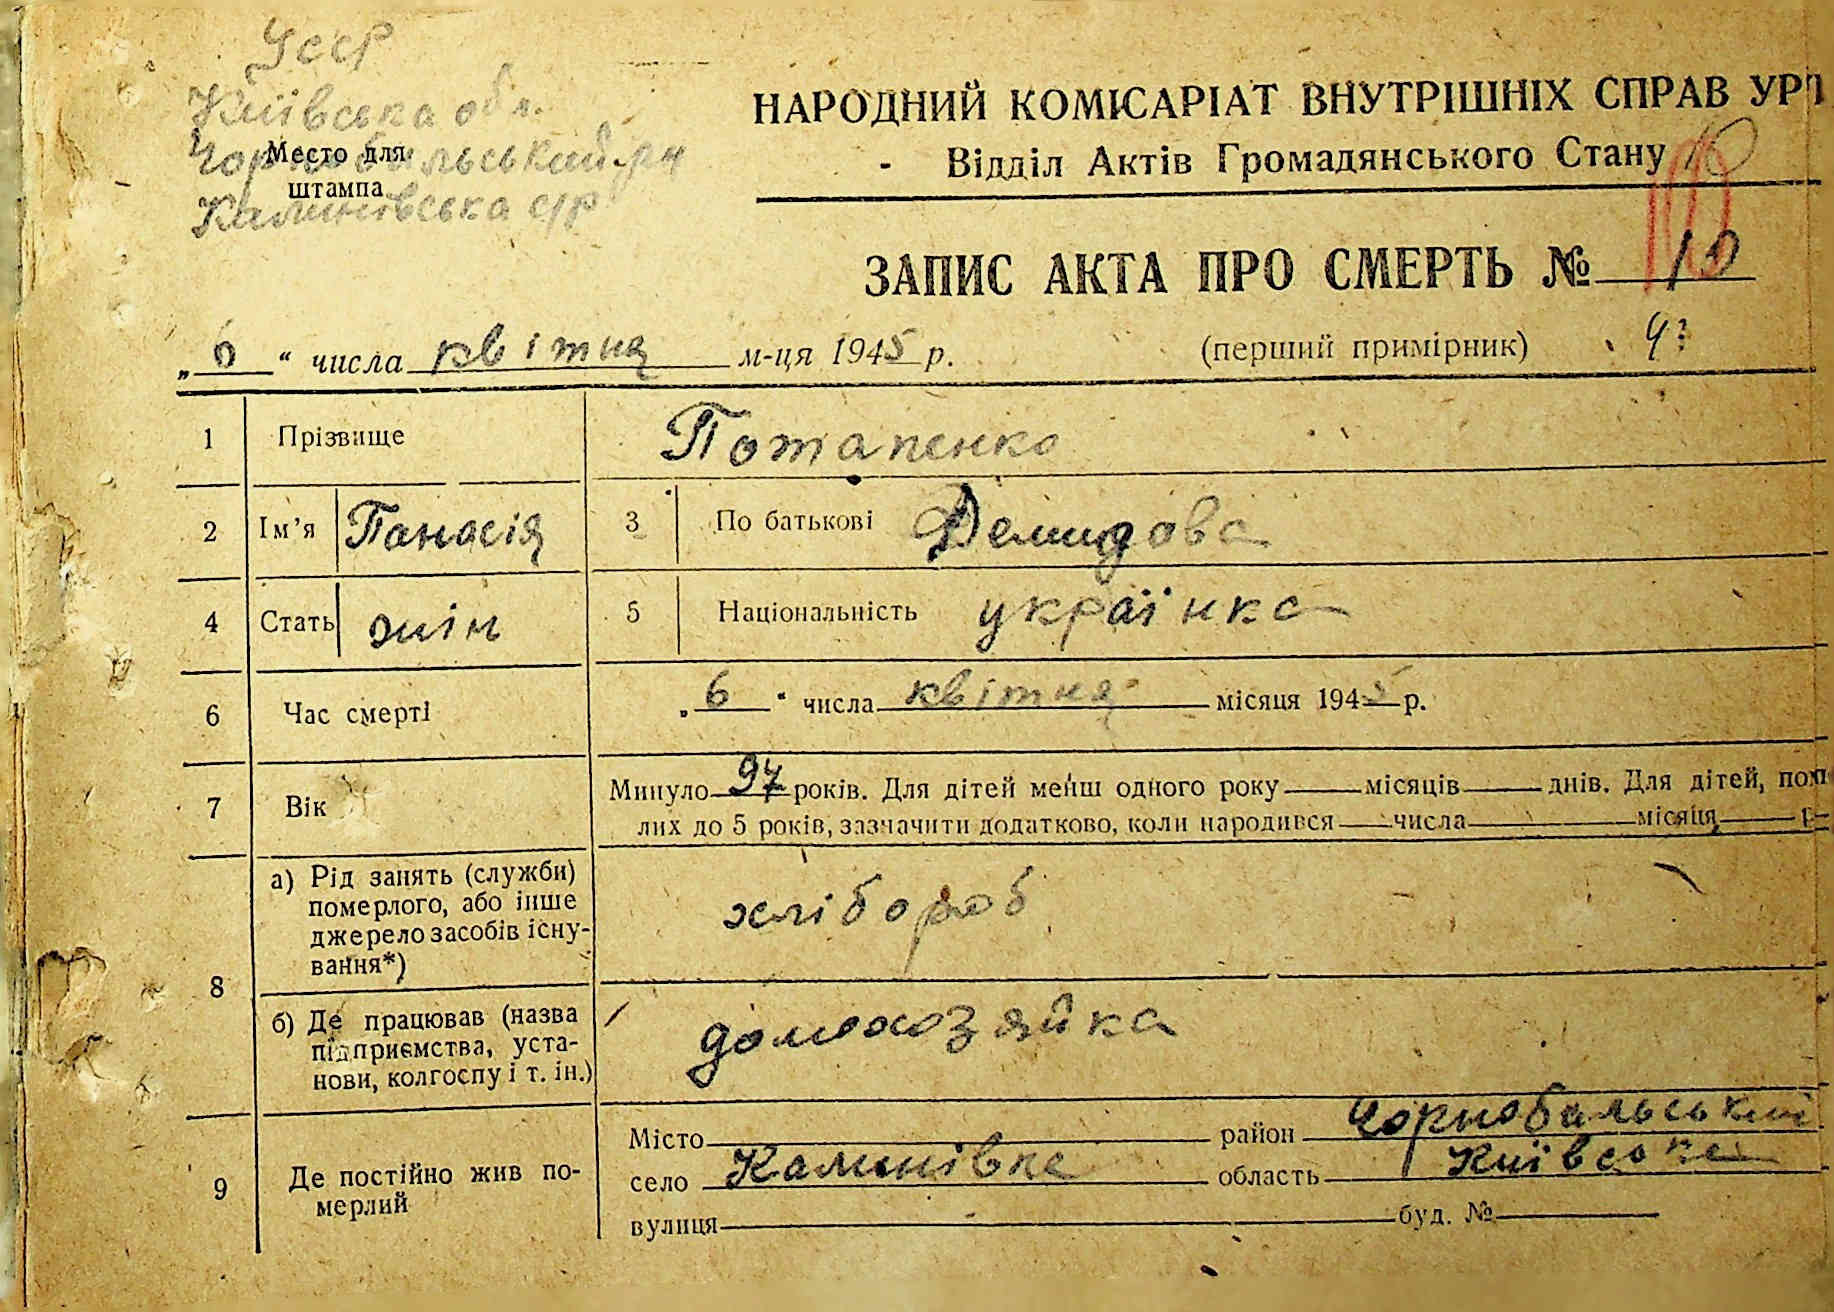 УССР
Київська обл.
Чорнобильський р-н
Место для
штампа
Калинівська с/р
НАРОДНИЙ КОМІСАРІАТ ВНУТРІШНІХ СПРАВ УРСР
Відділ Актів Громадянського Стану 10
ЗАПИС АКТА ПРО СМЕРТЬ № 10
„ 6 “ числа квітня м-ця 1945 р. (перший примірник)
1 Прізвище Потапенко
2 Ім’я Панасія 3 По батькові Демидова
4 Стать жін 5 Національність українка
6 Час смерті „ 6 “ числа квітня місяця 1945 р.
7 Вік Минуло 97 років. Для дітей менш одного року місяців днів. Для дітей, пом
лих до 5 років, зазначити додатково, коли народився числа місяця р
8 а) Рід занять (служби) померлого, або інше джерело засобів існування*) хлібороб
б) Де працював (назва підприємства, установи, колгоспу і т. ін.) домохозяйка
9 Де постійно жив померлий
Місто район Чорнобальський
село Калинівка область Київська
вулиця буд. №